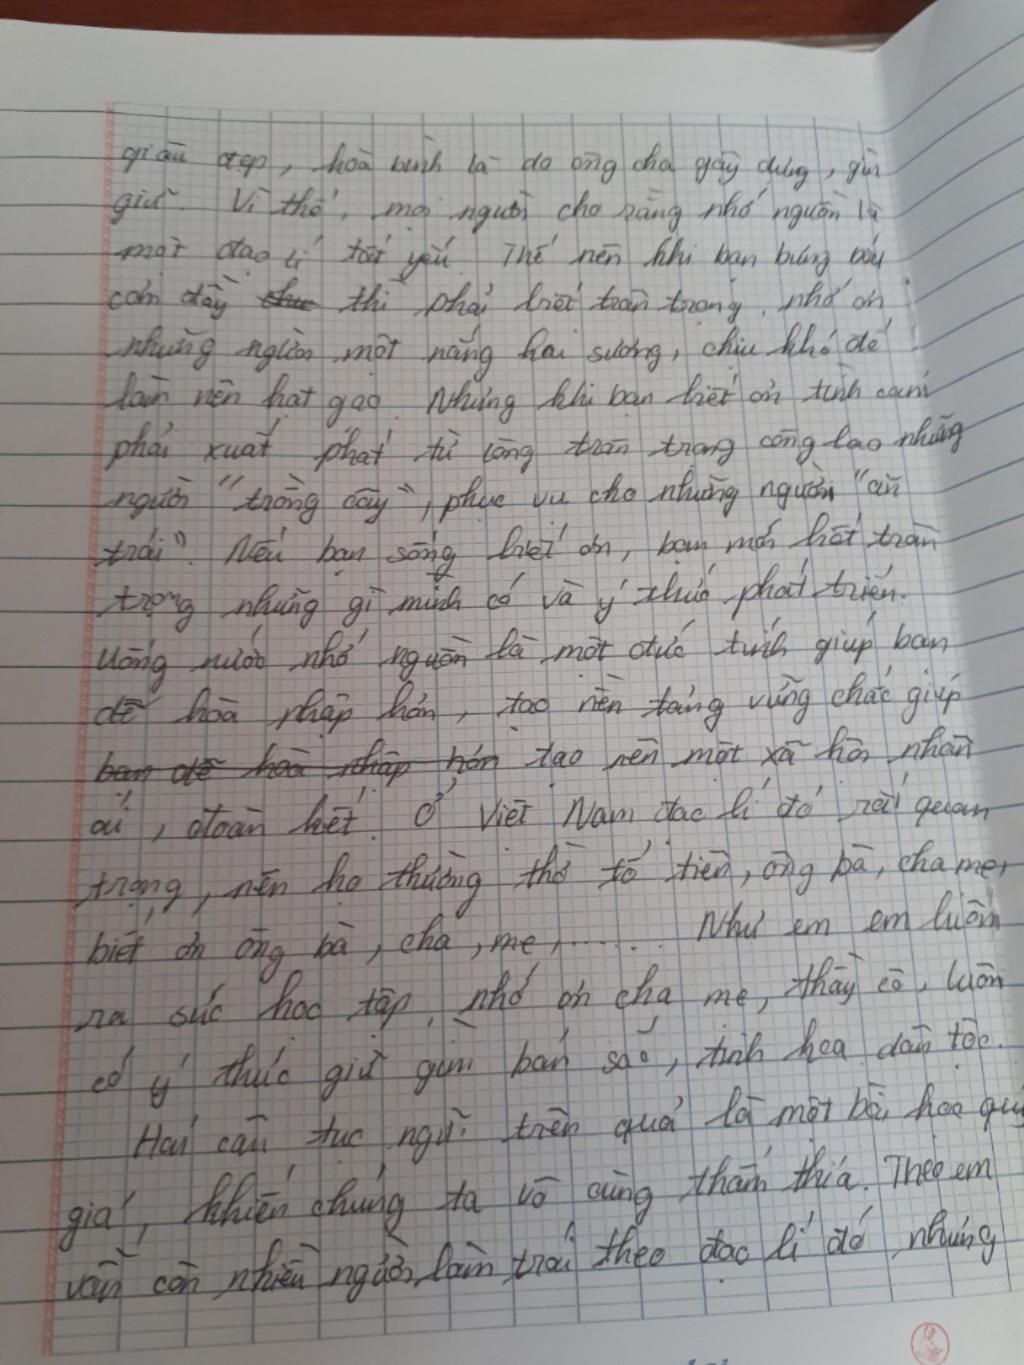 giàu đẹp, hoà bình là do ông cha gây dựng, gìn
giữ. Vì thế, mọi người cho rằng nhớ nguồn là
một đạo lí tất yếu. Thế nên khi bạn bưng bát
cơm đầy thì phải biết trân trọng, nhớ ơn
những người một nắng hai sương, chịu khó để
làm nên hạt gạo. Nhưng khi bạn biết ơn tình cảm
phải xuất phát từ lòng trân trọng công lao những
người "trồng cây", phục vụ cho những người "ăn
trái". Nếu bạn sống biết ơn, bạn mới biết trân
trọng những gì mình có và ý thức phát triển.
Uống nước nhớ nguồn là một đức tính giúp bạn
dễ hoà nhập hơn, tạo nền tảng vững chắc giúp
bạn dễ hoà nhập hơn tạo nên một xã hội nhân
ái, đoàn kết. Ở Việt Nam đạo lí đó rất quan
trọng, nên họ thường thờ tổ tiên, ông bà, cha mẹ,
biết ơn ông bà, cha, mẹ,...... Như em em luôn
ra sức học tập, nhớ ơn cha mẹ, thầy cô, luôn
có ý thức giữ gìn bản sắc, tinh hoa dân tộc.
Hai câu tục ngữ trên quả là một bài học quý
giá, khiến chúng ta vô cùng thấm thía. Theo em
vẫn còn nhiều người làm trái theo đạo lí đó, nhưng